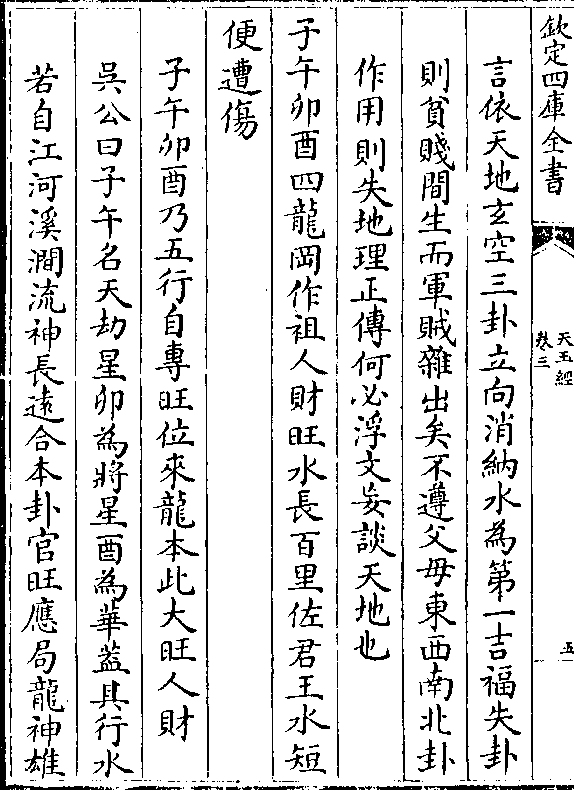 欽定四庫全書
天玉經
卷三
五
言依天地玄空三卦立向消納水為第一吉福失卦
則貧賤間生而軍賊雜出矣不遵父母東西南北卦
作用則失地理正傳何必浮文妄談天地也
子午卯酉四龍岡作祖人財旺水長百里佐君王水短
便遭傷
子午卯酉乃五行自專旺位來龍本此大旺人財
吳公曰子午名天劫星卯為將星酉為華蓋其行水
若自江河溪澗流神長遠合本卦官旺應局龍神雄